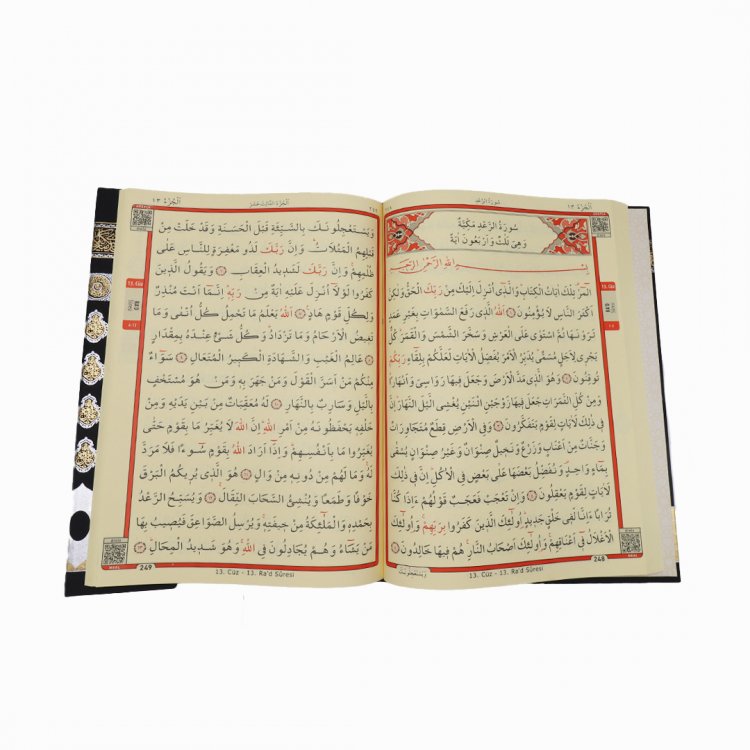 اَلْجُزْءُ ١٣
سُورَةُ الرَّعْدِ
سُورَةُ الرَّعْدِ مَكِّيَّةٌ
وَهِىَ ثَلٰثٌ وَاَرْبَعُونَ اٰيَةً
بِسْمِ اللّٰهِ الرَّحْمٰنِ الرَّحٖيمِ
الٓمٓرٰ تِلْكَ اٰيَاتُ الْكِتَابِ وَالَّذٖٓى اُنْزِلَ اِلَيْكَ مِنْ رَبِّكَ الْحَقُّ وَلٰكِنَّ
اَكْثَرَ النَّاسِ لَا يُؤْمِنُونَ ١ اَللّٰهُ الَّذٖى رَفَعَ السَّمٰوَاتِ بِغَيْرِ عَمَدٍ
تَرَوْنَهَا ثُمَّ اسْتَوٰى عَلَى الْعَرْشِ وَسَخَّرَ الشَّمْسَ وَالْقَمَرَ كُلٌّ
يَجْرٖى لِاَجَلٍ مُسَمًّى يُدَبِّرُ الْاَمْرَ يُفَصِّلُ الْاٰيَاتِ لَعَلَّكُمْ بِلِقَٓاءِ رَبِّكُمْ
تُوقِنُونَ ٢ وَهُوَ الَّذٖى مَدَّ الْاَرْضَ وَجَعَلَ فٖيهَا رَوَاسِىَ وَاَنْهَارًا
وَمِنْ كُلِّ الثَّمَرَاتِ جَعَلَ فٖيهَا زَوْجَيْنِ اثْنَيْنِ يُغْشِى الَّيْلَ النَّهَارَ اِنَّ
فٖى ذٰلِكَ لَاٰيَاتٍ لِقَوْمٍ يَتَفَكَّرُونَ ٣ وَفِى الْاَرْضِ قِطَعٌ مُتَجَاوِرَاتٌ
وَجَنَّاتٌ مِنْ اَعْنَابٍ وَزَرْعٌ وَنَخٖيلٌ صِنْوَانٌ وَغَيْرُ صِنْوَانٍ يُسْقٰى
بِمَٓاءٍ وَاحِدٍ وَنُفَضِّلُ بَعْضَهَا عَلٰى بَعْضٍ فِى الْاُكُلِ اِنَّ فٖى ذٰلِكَ
لَاٰيَاتٍ لِقَوْمٍ يَعْقِلُونَ ٤ وَاِنْ تَعْجَبْ فَعَجَبٌ قَوْلُهُمْ ءَاِذَا كُنَّا
تُرَابًا ءَاِنَّا لَفٖى خَلْقٍ جَدٖيدٍ اُولٰٓئِكَ الَّذٖينَ كَفَرُوا بِرَبِّهِمْ وَاُولٰٓئِكَ
الْاَغْلَالُ فٖٓى اَعْنَاقِهِمْ وَاُولٰٓئِكَ اَصْحَابُ النَّارِ هُمْ فٖيهَا خَالِدُونَ ٥
وَيَسْتَعْجِلُونَكَ
248
13. Cüz - 13. Ra'd Sûresi
13. Cüz
اَلْجُزْءُ ١٣
اَلْجُزْءُ الثَّالِثَ عَشَرَ
وَيَسْتَعْجِلُونَكَ بِالسَّيِّئَةِ قَبْلَ الْحَسَنَةِ وَقَدْ خَلَتْ مِنْ
قَبْلِهِمُ الْمَثُلَاتُ وَاِنَّ رَبَّكَ لَذُو مَغْفِرَةٍ لِلنَّاسِ عَلٰى
ظُلْمِهِمْ وَاِنَّ رَبَّكَ لَشَدٖيدُ الْعِقَابِ ٦ وَيَقُولُ الَّذٖينَ
كَفَرُوا لَوْلَٓا اُنْزِلَ عَلَيْهِ اٰيَةٌ مِنْ رَبِّهٖ اِنَّمَٓا اَنْتَ مُنْذِرٌ
وَلِكُلِّ قَوْمٍ هَادٍ ٧ اَللّٰهُ يَعْلَمُ مَا تَحْمِلُ كُلُّ اُنْثٰى وَمَا
تَغٖيضُ الْاَرْحَامُ وَمَا تَزْدَادُ وَكُلُّ شَىْءٍ عِنْدَهُ بِمِقْدَارٍ
٨ عَالِمُ الْغَيْبِ وَالشَّهَادَةِ الْكَبٖيرُ الْمُتَعَالِ ٩ سَوَٓاءٌ
مِنْكُمْ مَنْ اَسَرَّ الْقَوْلَ وَمَنْ جَهَرَ بِهٖ وَمَنْ هُوَ مُسْتَخْفٍ
بِالَّيْلِ وَسَارِبٌ بِالنَّهَارِ ١٠ لَهُ مُعَقِّبَاتٌ مِنْ بَيْنِ يَدَيْهِ وَمِنْ
خَلْفِهٖ يَحْفَظُونَهُ مِنْ اَمْرِ اللّٰهِ اِنَّ اللّٰهَ لَا يُغَيِّرُ مَا بِقَوْمٍ حَتّٰى
يُغَيِّرُوا مَا بِاَنْفُسِهِمْ وَاِذَٓا اَرَادَ اللّٰهُ بِقَوْمٍ سُٓوءًا فَلَا مَرَدَّ
لَهُ وَمَا لَهُمْ مِنْ دُونِهٖ مِنْ وَالٍ ١١ هُوَ الَّذٖى يُرٖيكُمُ الْبَرْقَ
خَوْفًا وَطَمَعًا وَيُنْشِئُ السَّحَابَ الثِّقَالَ ١٢ وَيُسَبِّحُ الرَّعْدُ
بِحَمْدِهٖ وَالْمَلٰٓئِكَةُ مِنْ خٖيفَتِهٖ وَيُرْسِلُ الصَّوَاعِقَ فَيُصٖيبُ بِهَا
مَنْ يَشَٓاءُ وَهُمْ يُجَادِلُونَ فِى اللّٰهِ وَهُوَ شَدٖيدُ الْمِحَالِ ١٣
249
13. Cüz - 13. Ra'd Sûresi
13. Cüz